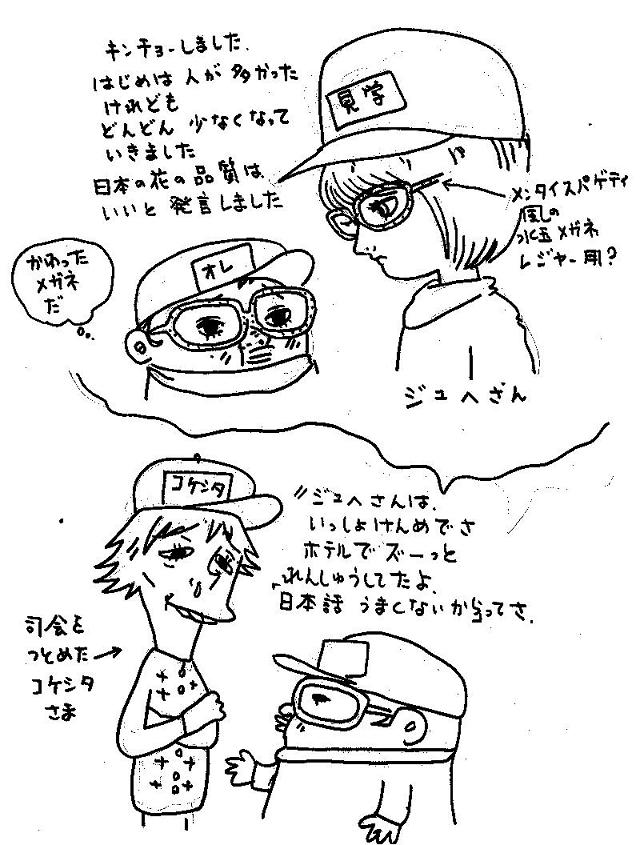 キンチョーしました.
はじめは人が多かった
けれども
どんどん 少なくなって
いきました
日本の花の品質は
いいと 発言しました
見学
メンタイスパゲティ
風の
水玉メガネ
レジャー用?
かわった
メガネ
だ
オレ
ジュヘさん
コケシタ
"ジュヘさんは、
いっしょけんめでさ
ホテルでズーっと
れんしゅうしてたよ.
日本話 うまくないからってさ.
司会を
つとめた
コケシタ
さま